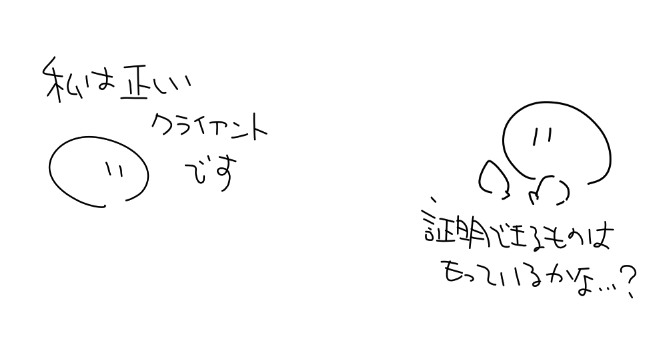 私は正しい
クライアント
です
証明できるものは
もっているかな…?